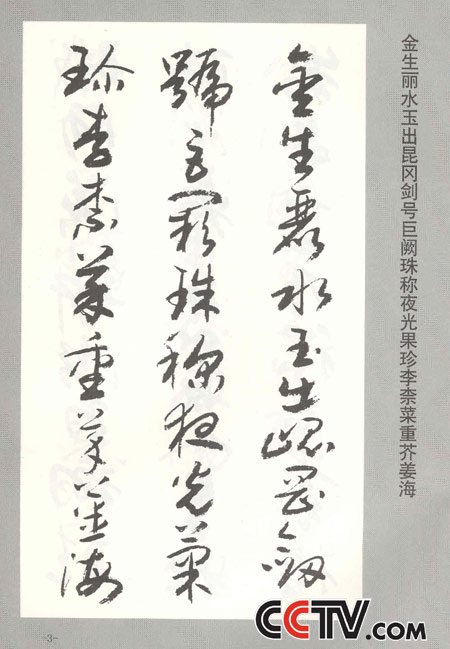 金生丽水玉出昆冈剑号巨阙珠称夜光果珍李柰菜重芥姜海
金生麗水玉出崑岡劔
號巨闕珠稱夜光菓
珍李柰菜重芥薑海
-3-
CCTV.com